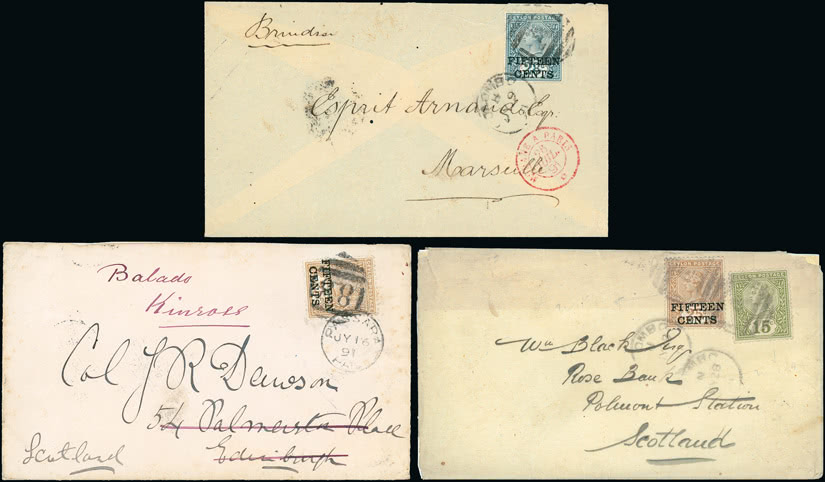 Brindisi
CEYLON POSTAGE
FIFTEEN
CENTS
Esprit Arnaud Esqr.
Marseille
A PARIS
91
Balado
Kinross
FIFTEEN
CENTS
JY 16
91
Col J R Dewson
54 Palmerston Place
Edinburgh
Scotland
CEYLON POSTAGE
FIFTEEN
CENTS
15
Wm Black Esq
Rose Bank
Polmont Station
Scotland